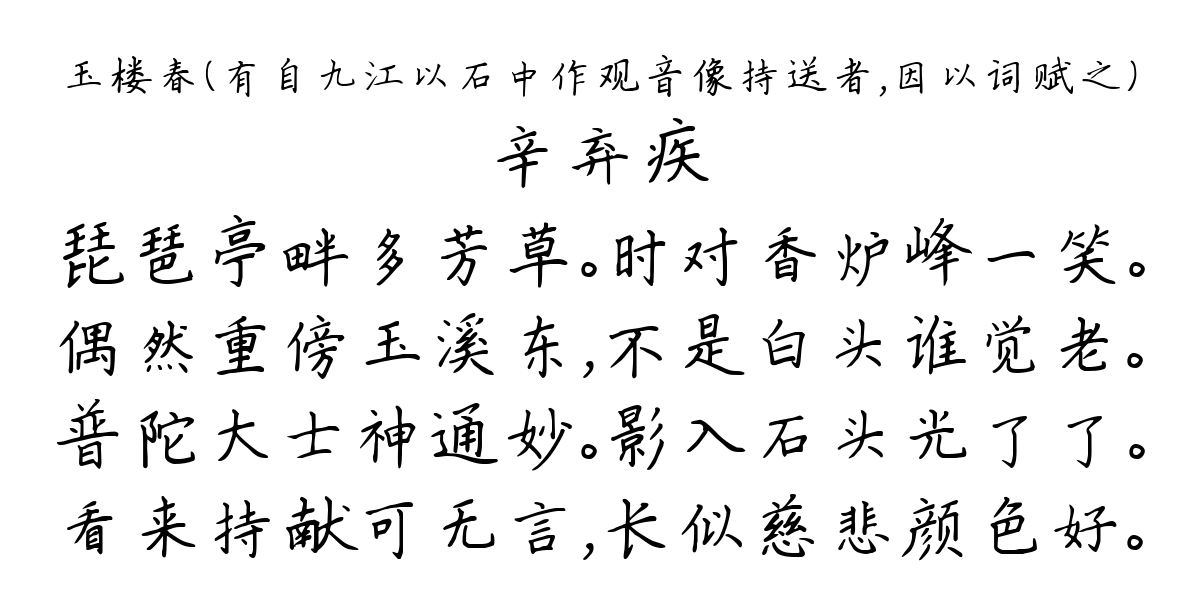 玉楼春(有自九江以石中作观音像持送者,因以词赋之)
辛弃疾
琵琶亭畔多芳草。时对香炉峰一笑。
偶然重傍玉溪东,不是白头谁觉老。
普陀大士神通妙。影入石头光了了。
看来持献可无言,长似慈悲颜色好。